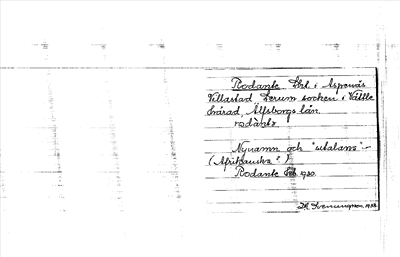 Rodante. Lht. i Aspenäs
Villastad Lerum socken i Vättle
härad, Älfsborgs län.
rodànte
Nynamn och "utalans" -
(Afrikanska?)
Rodante 1930.
1933